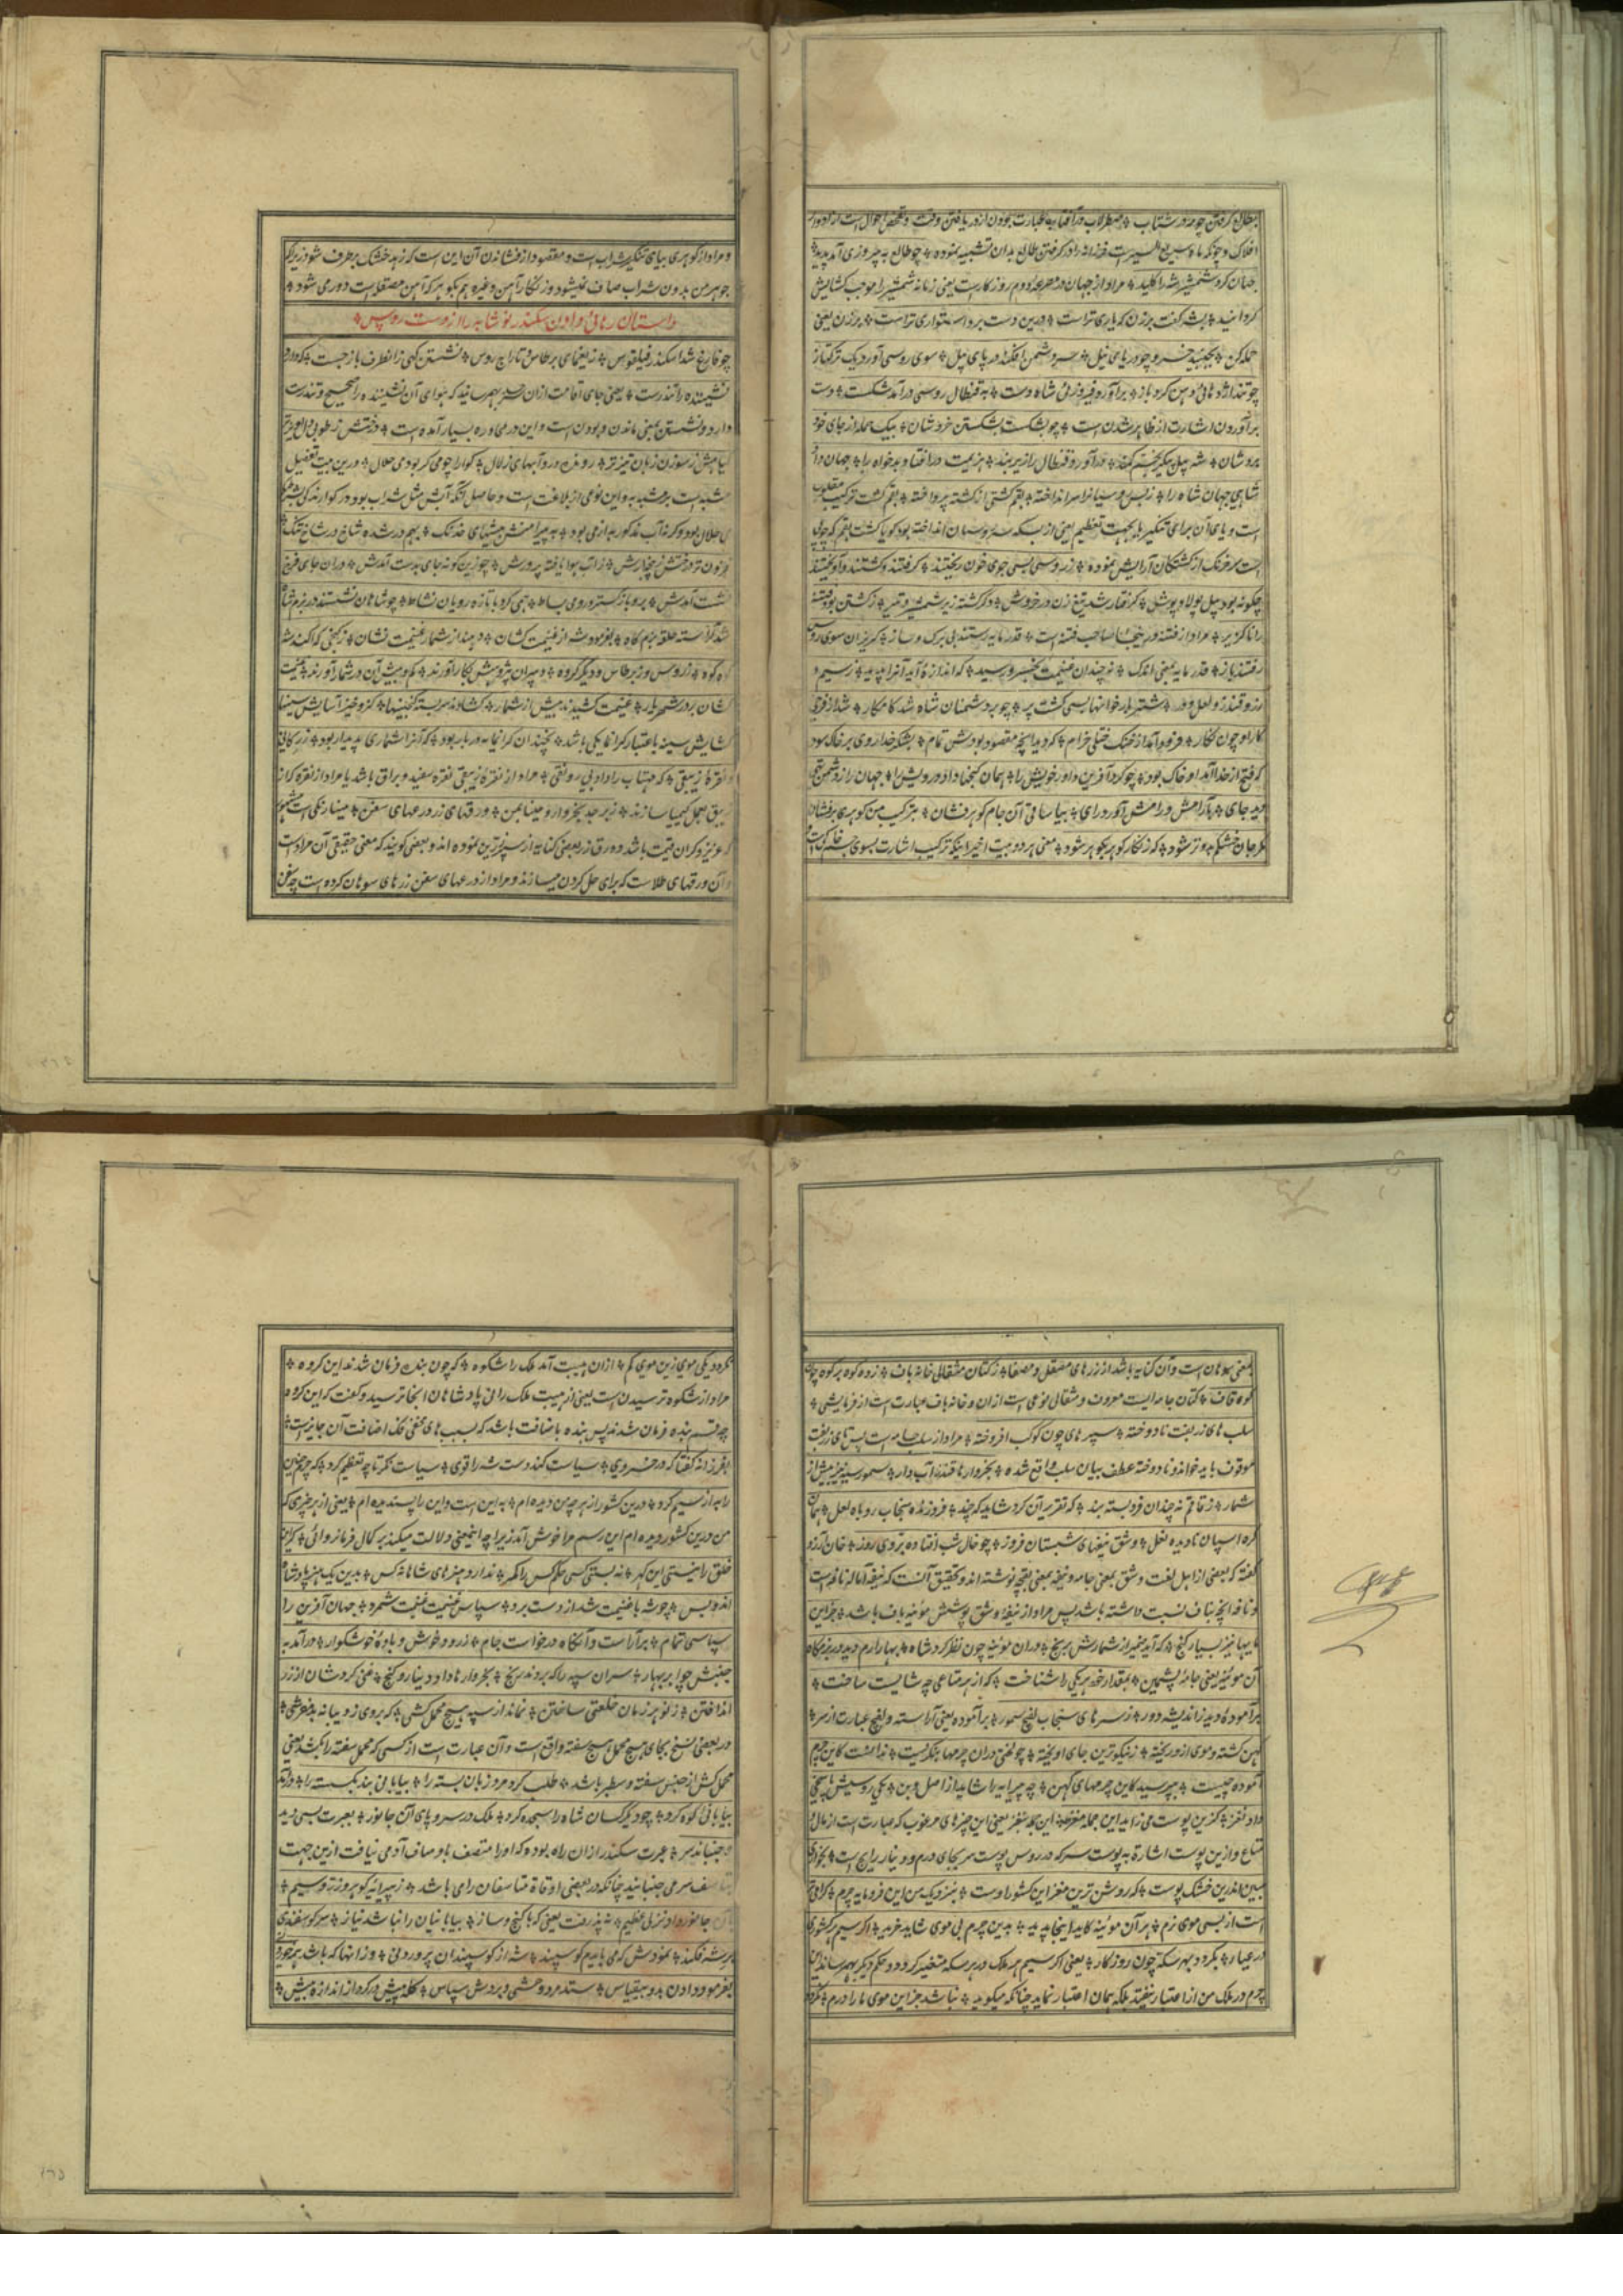 بطالع گرفتن چو مه در شتاب ٭ صطرلاب در آفتاب
افلاک و چونکه ماه سریع السیر است فرزانه را در گرفتن طالع بدان تشبیه نموده ٭ چو طالع به پیروزی آمد پدید ٭
جهان کرد شمشیر شه را کلید ٭ مراد از جهان در مصرعه دوم روزگارست یعنی زمانه شمشیر را موجب کشایش
گردانید ٭ بشه گفت برزن که یاری تراست ٭ درین دست برد استواری تراست ٭ برزن یعنی
حمله کن ٭ بجنبید خسرو چو دریای نیل ٭ سر دشمن افگند در پای پیل ٭ سوی روسی آورد یک ترکتاز
چو تند اژدهائی دهن کرد باز ٭ برآورد فیروزئی شاه دست ٭ به قنطال روسی درآمد شکست ٭ دست
برآوردن اشارت از ظاهر شدن است ٭ چو بشکست بشکستن خردشان ٭ بیک حمله از جای خود
بردشان ٭ شه پیل پیکر بخم کمند ٭ درآورد قنطال را زیر بند ٭ هزیمت درافتاد بدخواه را ٭ جهان داد
شاهی جهان شاه را ٭ ز بس روسیانرا سر انداخته ٭ بقم کشتی از کشته پرداخته ٭ بقم کشت ترکیب مقلوب
است و یای آن برای تنکیر یا بجهت تعظیم یعنی از بسکه سر روسیان انداخته بود گویا کشت بقم که چوبی
است سرخ رنگ از کشتگان آرایش نموده ٭ ز روسی بسی جوی خون ریختند ٭ گرفتند و کشتند و آویختند
چگونه بود پیل پولاد پوش ٭ گرفتار شد تیغ زن در خروش ٭ دگر کشته زیر شمشیر و تیر ٭ ز کشتن بود فتنه
را ناگزیر ٭ مراد از فتنه درینجا صاحب فتنه است ٭ قدر مایه رستند بی برگ و ساز ٭ گریزان سوی روس
رفتند باز ٭ قدر مایه بمعنی اندک ٭ نه چندان غنیمت بخسرو رسید ٭ که اندازه آید آنرا پدید ٭ ز سیم و
زر و قندز و لعل و در ٭ شتر بار خوانها بسی گشت پر ٭ چو بر دشمنان شاه شد کامگار ٭ شد از فرخی
کار او چون نگار ٭ فرود آمد از خنگ ختلی خرام ٭ که دید آنچه مقصود بودش تمام ٭ بشکر خدا روی بر خاک سود
که فتح از خدا آمد او خاک بود ٭ چو کرد آفرین داور خویش را ٭ همان گنجها داد درویش را ٭ جهان را ز دشمن تهی
دید جای ٭ بآرامش و رامش آورد رای ٭ بیا ساقی آن جام گوهر فشان ٭ بترکیب من گوهری برفشان
مگر جان خشکم بدو تر شود ٭ که زنگار گوهر بگوهر شود ٭ معنی هر دو بیت اخیر اینکه ترکیب اشارت بسوی جسم خاکی است
و مراد از گوهری بیای تنکیر شراب است و مقصود از فشاندن آن این است که زهد خشک برطرف شود زیرا که
جوهر من بدون شراب صاف نمیشود و زنگار آهن و غیره هم بگوهر که آهن مصقله است دور می شود ٭
داستان رهائی دادن سکندر نوشابه را از دست روس ٭
چو فارغ شد اسکندر فیلقوس ٭ ز یغمای برطاس و تاراج روس ٭ نشستن گهی زان طرف بازجست ٭ که دارد
نشیننده را تندرست ٭ یعنی جای اقامت ازان سرحد بهم رسانید که هوای آن نشیننده را صحیح و تندرست
دارد و نشستن بمعنی ماندن و بودن است و این در محاوره بسیار آمده است ٭ درختش ز طوبی دلاویزتر
گیاهش ز سوزن زبان تیزتر ٭ رونده درو آبهای زلال ٭ گوارا چو می گر بود می حلال ٭ و درین بیت تفضیل
مشبه است بر مشبه به و این نوعی از بلاغت است و حاصل آنکه آبش مثل شراب بود در گوارندگی
حلال بود وگرنه آب مذکور به از می بود ٭ به پیرامنش بیشهای خدنگ ٭ بهم در شده شاخ در شاخ تنگ ٭
زآب هوا یافته پرورش ٭ چو زین گونه جای بدست آمدش ٭ دران جای فرخ
نشست آمدش ٭ برو باز گسترد رومی بساط ٭ تهی کرد با تازه رویان نشاط ٭ چو شاهان نشستند در بزم شاه
شد آراسته حلقه بزم گاه ٭ بفرمود شه از غنیمت کشان ٭ دهند از شمار غنیمت نشان ٭ ز گنجی که آگند شد
کوه کوه ٭ ز روس و ز برطاس و دیگر گروه ٭ دبیران پژوهش بکار آورند ٭ کم و بیش آن در شمار آورند ٭ غنیمت
کشان بر در شهریار ٭ غنیمت کشیدند بیش از شمار ٭ کشادند سربسته گنجینها ٭ کزو خیزد آسایش سینها
کشایش سینه باعتبار گرانمایگی باشد ٭ نچندان گرانمایه در بار بود ٭ که آنرا شماری پدیدار بود ٭ زر کانی
و نقره زیبقی ٭ که مهتاب را داد بی رونقی ٭ مراد از نقره زیبقی نقره سفید و براق باشد یا مراد از نقره که از
زیبق بعمل کیمیا سازند ٭ زبرجد بخروار و مینا بمن ٭ ورقهای زر درعهای سفن ٭ مینا رنگی است مشهور
که عزیز و گران قیمت باشد و ورق زر بعضی کنایه از سپر زرین نموده اند و بعضی گویند که معنی حقیقی آن مراد است
و آن ورقهای طلاست که برای حل کردن میسازند و مراد از درعهای سفن زرهای سوهان کرده است چه سفن
بمعنی سوهان است و آن کنایه باشد از زرهای مصقل و مصفا ٭ ز کتان مثقالی خانه باف ٭ زده کوه بر کوه چون
کوه قاف ٭ کتان جامه ایست معروف و مثقالی نوعی است ازان و خانه باف عبارت است از فرمایشی ٭
سلب های زربفت نادوخته ٭ سپر های چون کوکب افروخته ٭ مراد از سلب جامه است
موقوف باید خواند و نادوخته عطف بیان سلب واقع شده ٭ بخروارها قندز آب دار ٭ سمور سیه نیز بیش از
شمار ٭ ز قاقم نه چندان فرو بسته بند ٭ که تقریر آن کرد شاید که چند ٭ فروزنده سنجاب روباه لعل ٭ همان
کره اسپان نادیده نعل ٭ وشق نیفهای شبستان فروز ٭ چو خال شب افتاده بر روی روز ٭ خان آرزو
گفته که بعضی از اهل لغت وشق بمعنی جامه و نیفه بمعنی نوشته اند و تحقیق آنست که نیفه اماله نافه است
و نافه آنچه بناف نسبت داشته باشد پس مراد از نیفه وشق پوشش موئینه باف باشد ٭ جز این
مایها نیز بسیار گنج ٭ که آید ضمیر از شمارش برنج ٭ دران موئینه چون نظر کرد شاه ٭ بهار ارم دید در بزمگاه
آن موئینه یعنی جامه پشمین ٭ بمقدار خود هر یکی را شناخت ٭ که از هر متاعی چه شایست ساخت ٭
برآموده دید ز اندیشه دور ٭ ز سر های سنجاب و لفج سمور ٭ برآموده یعنی آراسته و لفج عبارت از سر ٭
کهن گشته و موی ازو ریخته ٭ ز نیکوترین جای آویخته ٭ چو لختی دران چرمها بنگریست ٭ ندانست کاین چرم
آموده چیست ٭ بپرسید کاین چرمهای کهن ٭ چه پیرایه را شاید از اصل و بن ٭ یکی روسیش پاسخی
داد نغز ٭ کزین پوست می زاید این جمله مغز ٭ این جمله مغز یعنی این چیزهای مرغوب که عبارت است از مال و
متاع و ازین پوست اشارة به پوست سر که در روس پوست سر بجای درم و دینار رایج است ٭ بخواری
مبین اندرین خشک پوست ٭ که روشن ترین مغز این کشور اوست ٭ بنزدیک من این فرومایه چرم ٭ گرامی تر
است از بسی موی نرم ٭ هر آن موئینه کاید اینجا پدید ٭ بدین چرم بی موی شاید خرید ٭ اگر سیم هر کشوری
در عیار ٭ بگردد بهر سکه چون روزگار ٭ یعنی اگر سیم هر ملک در هر سکه متغیر گردد و حکم دیگر بهم رساند این
چرم در ملک من از اعتبار نیفتد بلکه همان اعتبار نماید چنانکه میگوید ٭ نباشد جز این موی ما را درم ٭ نگردد
نگردد یکی موی زین موی کم ٭ ازان هیبت آمد ملک را شکوه ٭ که چون بنده فرمان شدند این گروه ٭
مراد از شکوه ترسیدن است یعنی از هیبت ملک رانی پادشاهان آنجا ترسید و گفت که این گروه
چه قسم بنده فرمان شدند پس بنده باضافت باشد که بسبب های مختفی فک اضافت آن جایز است ٭
بفرزانه گفتا که در خسروی ٭ سیاست کند دست شه را قوی ٭ سیاست نگر تا چه تعظیم کرد ٭ که چرم چنین
را به از سیم کرد ٭ درین کشور از هرچه من دیده ام ٭ به این است و این را پسندیده ام ٭ یعنی از هر چیزی که
من درین کشور دیده ام این رسم مرا خوش آمد زیرا چه اینمعنی دلالت میکند به کمال فرمانروائی ٭ گر این
خلق را نیستی این گهر ٭ نه بستی کسی حکم کس را کمر ٭ ندارد هنرهای شاهانه کس ٭ بدین یک هنر پادشاه
اند و بس ٭ چو شه با غنیمت شد از دست برد ٭ سپاس غنیمت غنیمت شمرد ٭ جهان آفرین را
سپاسی تمام ٭ برآراست وآنگاه درخواست جام ٭ ز رود خوش و باده خوشگوار ٭ درآمد به
جنبش چو ابر بهار ٭ سران سپه را که بردند رنج ٭ بخروارها داد دینار و گنج ٭ غنی کردشان از زر
انداختن ٭ ز نو هر زمان خلعتی ساختن ٭ نماند از سپه هیچ محمل کشی ٭ که بروی ز دیبا نه بد مفرشی ٭
در بعضی نسخ بجای هیچ محمل هیچ سفته واقع است و آن عبارت است از کسی که محمل سفته را بکشد یعنی
محمل کش از جنس سفته و سطبر باشد ٭ طلب کرد مرد زبان بسته را ٭ بیابانی بند بگسسته را ٭ درآمد
بیابانی کوه گرد ٭ چو دیگر کسان شاه را سجده کرد ٭ ملک در سر و پای آن جانور ٭ بعبرت بسی دید
و جنباند سر ٭ عبرت سکندر ازان راه بوده که او را متصف باوصاف آدمی نیافت ازین جهت
سر می جنبانید چنانکه در بعضی اوقاة متاسفان را می باشد ٭ ز پیرایه گوهر و زر و سیم ٭
بآن جانور داد نزلی عظیم ٭ نه پذرفت یعنی که با گنج و ساز ٭ بیابانیان را نباشد نیاز ٭ سر گوسفندی
بر شه فگند ٭ نمودش که می بایدم گوسپند ٭ شه از گوسپندان پروردنی ٭ وز انها که باشد هم خوردنی
بفرمود دادن بدو بیقیاس ٭ ستد مرد وحشی و بردش سپاس ٭ گله پیش در کرد از اندازه بیش ٭